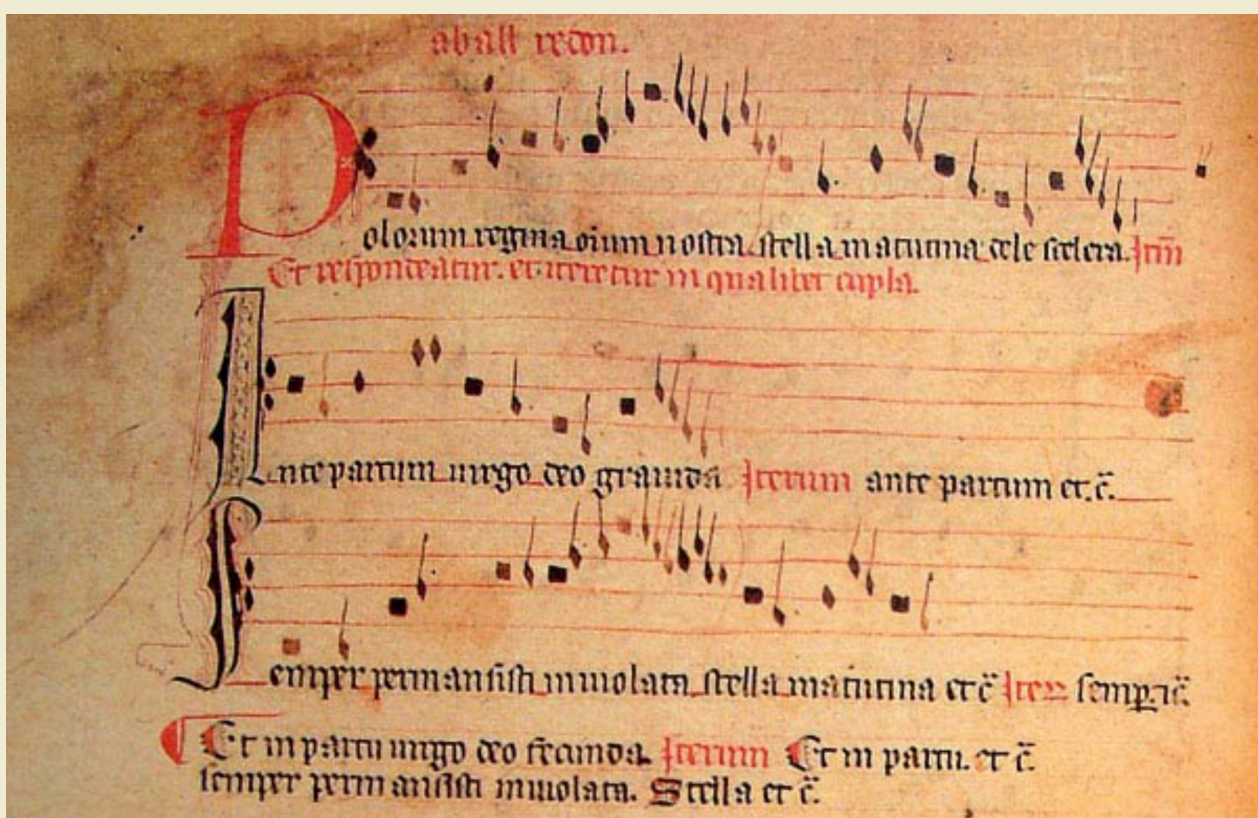 a ball redon.
Polorum regina oīum nostra stella matutina dele scelera. Itm̄
Et respondeatur. et iteretur in qualibet cupla.
Ante partum uirgo deo grauida Iterum ante partum et.c̄.
Semper permansisti inuiolata stella matutina et c̄ Iter semp.
Et in partu uirgo deo fecunda. Iterum Et in partu. et c̄.
semper permansisti inuiolata. Stella et c̄.